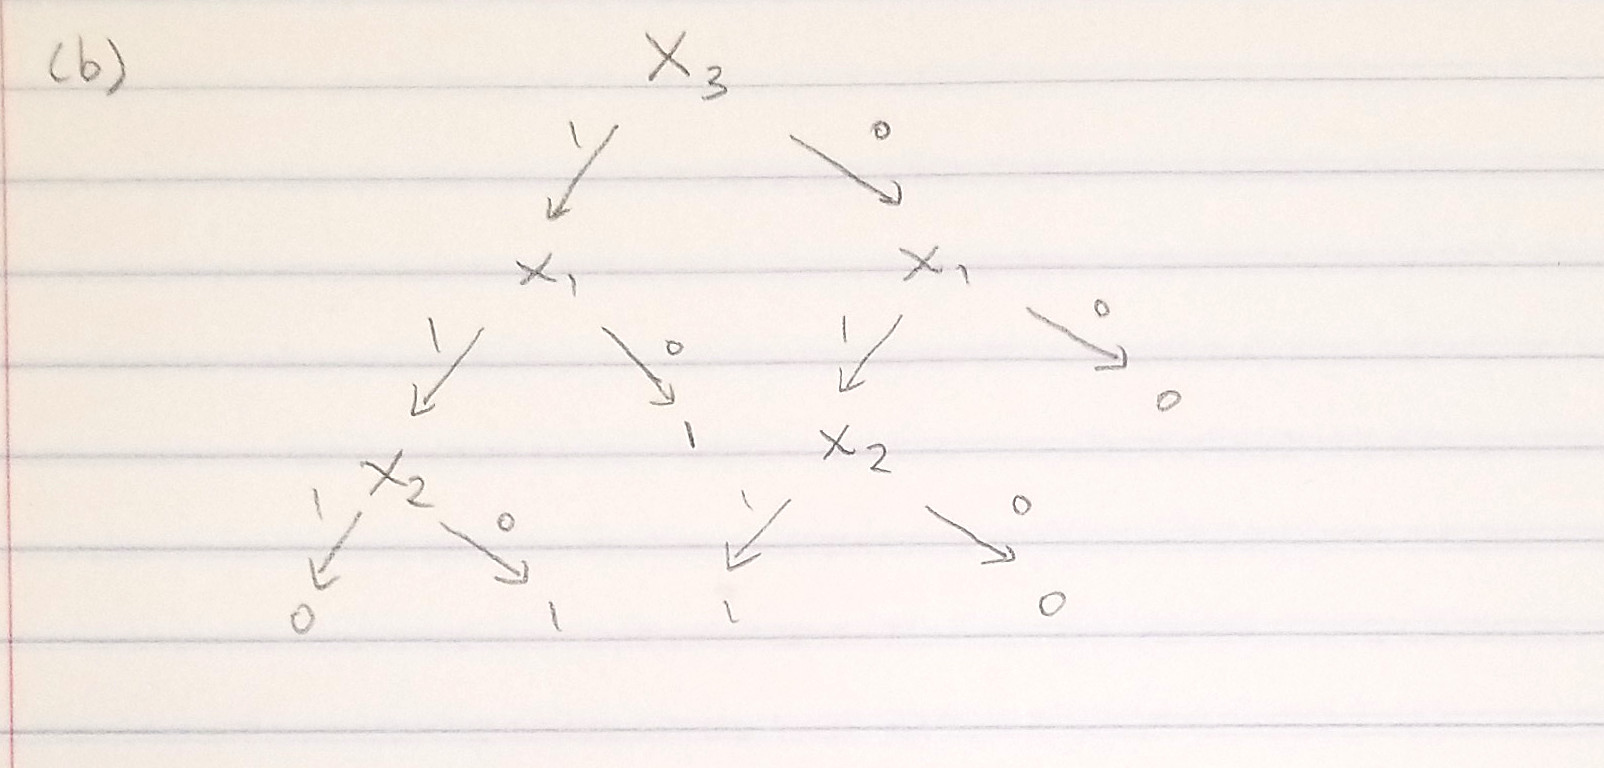 (b) X₃
1 0
X₁ X₁
1 0 1 0
1 0
X₂ X₂
1 0 1 0
0 1 1 0